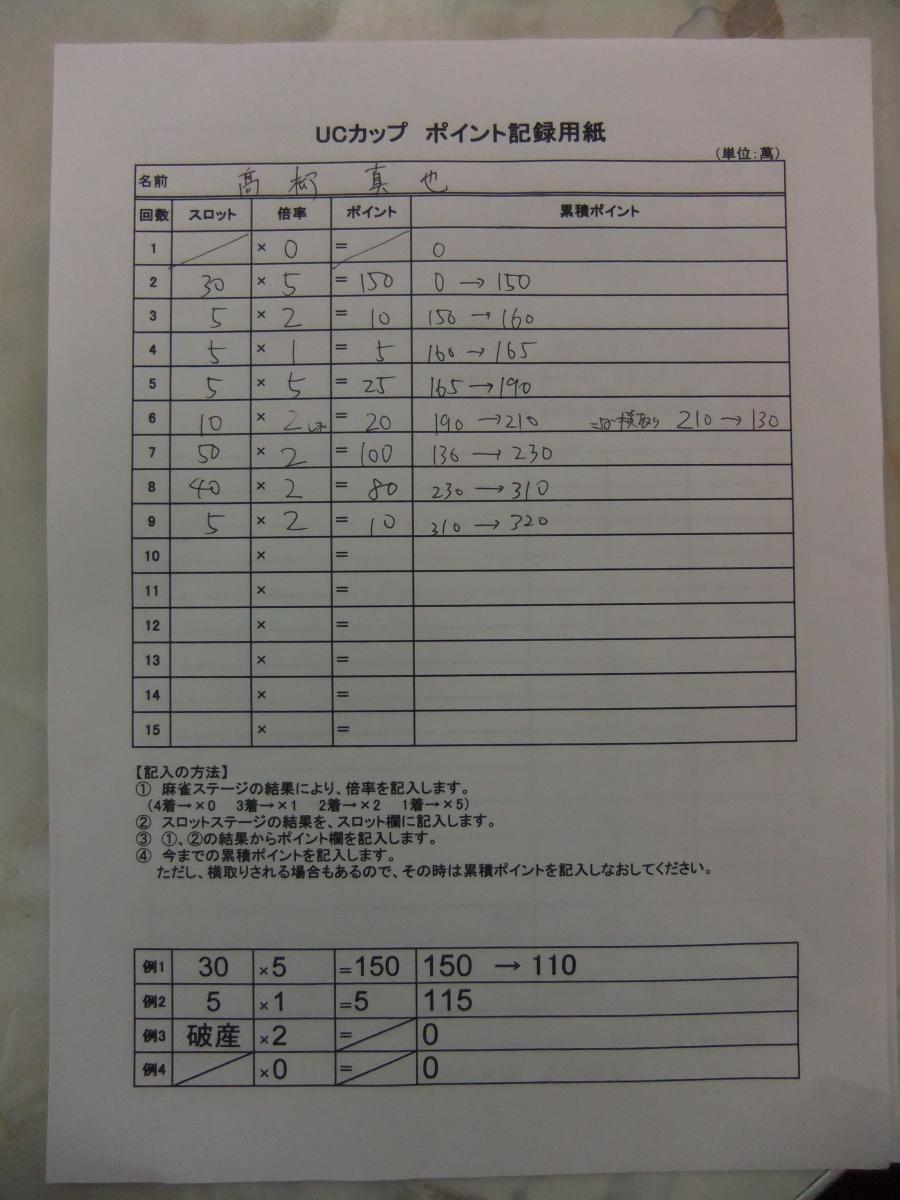 UCカップ ポイント記録用紙
(単位:萬)
名前 高 真 也
回数 スロット 倍率 ポイント 累積ポイント
1 × 0 = 0
2 30 × 5 = 150 0 → 150
3 5 × 2 = 10 150 → 160
4 5 × 1 = 5 160 → 165
5 5 × 5 = 25 165 → 190
6 10 × 2 = 20 190 → 210 横取り 210 → 130
7 50 × 2 = 100 130 → 230
8 40 × 2 = 80 230 → 310
9 5 × 2 = 10 310 → 320
10 × =
11 × =
12 × =
13 × =
14 × =
15 × =
【記入の方法】
① 麻雀ステージの結果により、倍率を記入します。
(4着→×0 3着→×1 2着→×2 1着→×5)
② スロットステージの結果を、スロット欄に記入します。
③ ①、②の結果からポイント欄を記入します。
④ 今までの累積ポイントを記入します。
ただし、横取りされる場合もあるので、その時は累積ポイントを記入しなおしてください。
例1 30 ×5 =150 150 → 110
例2 5 ×1 =5 115
例3 破産 ×2 = 0
例4 ×0 = 0